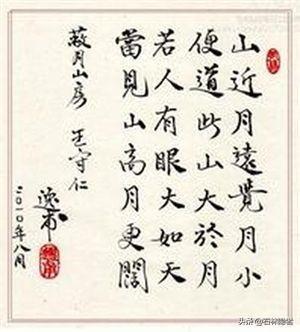 山近月遠覺月小
便道此山大於月
若人有眼大如天
當見山高月更闊
蔽月山房 王守仁
逸甫
二〇一〇年八月
头条 @石林